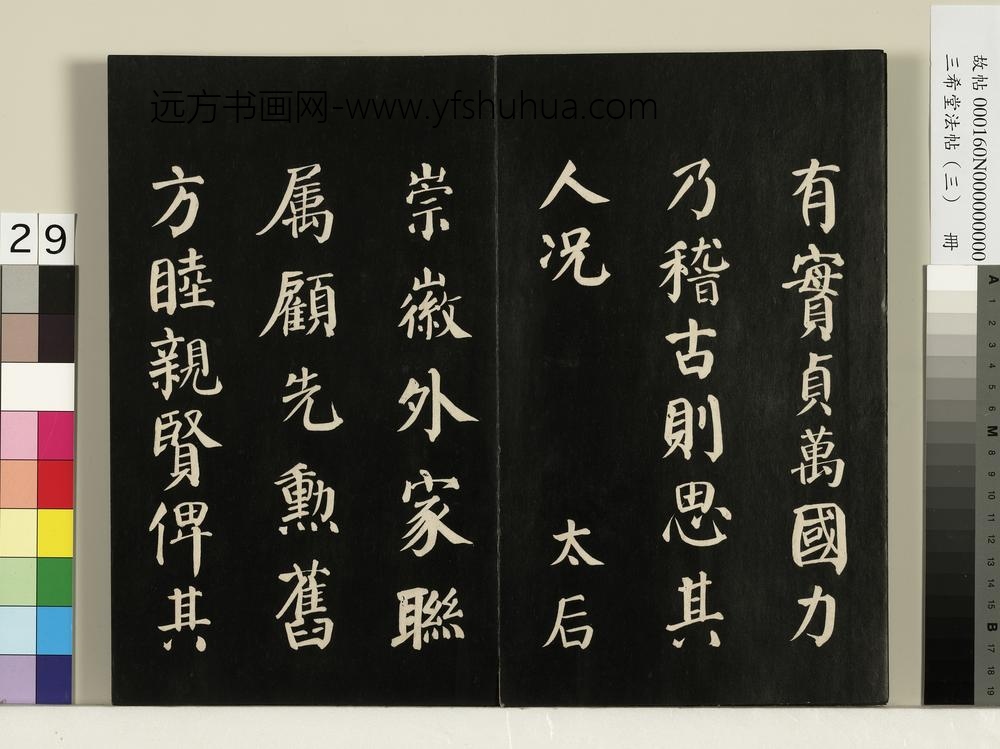 有實貞萬國力
乃稽古則思其
人况 太后
崇徽外家聯
属顧先勲舊
方睦親賢俾其
远方书画网-www.yfshuhua.com
故帖 000160N000000000
三希堂法帖(三) 冊
29
A 1 2 3 4 5 6 M 8 9 10 11 12 13 14 15 B 17 18 19